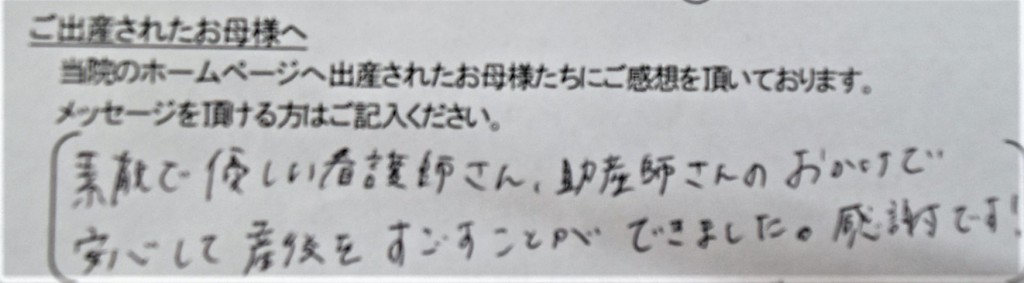 ご出産されたお母様へ
当院のホームページへ出産されたお母様たちにご感想を頂いております。
メッセージを頂ける方はご記入ください。
素敵で優しい看護師さん、助産師さんのおかげで
安心して産後をすごすことができました。感謝です!